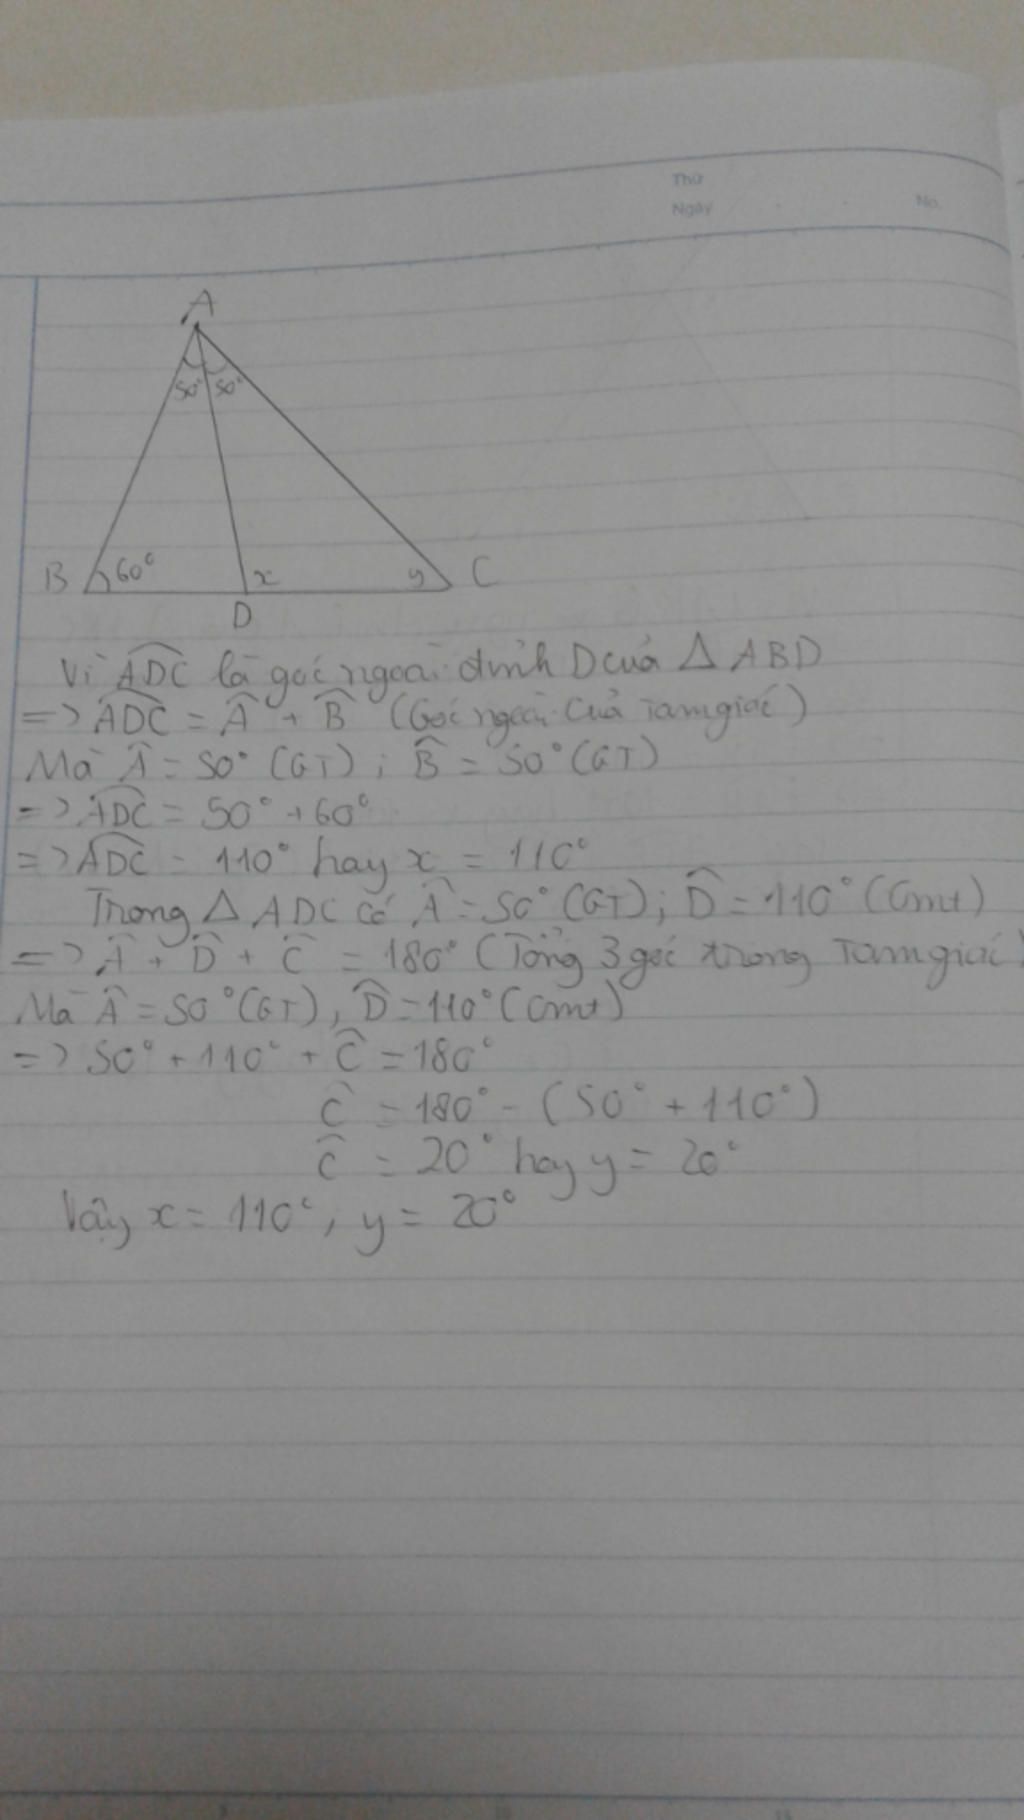 Thứ
Ngày
No.
A
50° 50°
B 60° x y C
D
Vì ADC là góc ngoài đỉnh D của Δ ABD
=> ADC = Â + B̂ (Góc ngoài của Tam giác)
Mà Â = 50° (GT) ; B̂ = 50° (GT)
=> ADC = 50° + 60°
=> ADC = 110° hay x = 110°
Trong Δ ADC có Â = 50° (GT) ; D̂ = 110° (Cmt)
=> Â + D̂ + Ĉ = 180° (Tổng 3 góc trong Tam giác)
Mà Â = 50° (GT) , D̂ = 110° (Cmt)
=> 50° + 110° + Ĉ = 180°
Ĉ = 180° - (50° + 110°)
Ĉ = 20° hay y = 20°
Vậy x = 110° , y = 20°